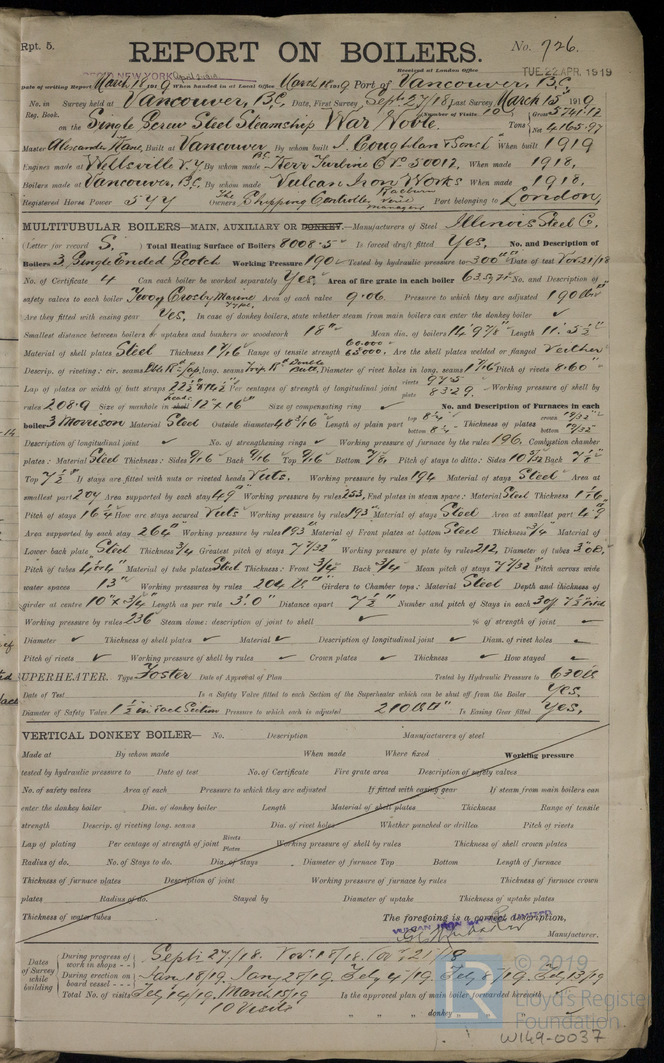 Rpt. 5. REPORT ON BOILERS. No. 726.
Received at London Office TUE. 22 APR. 1919
Date of writing Report March 18 1919 When handed in at Local Office March 18 1919 Port of Vancouver, B.C.
No. in Survey held at Vancouver, B.C. Date, First Survey Sept. 27/18 Last Survey March 15 1919
Reg. Book. (Number of Visits 10) Gross 5741.12
on the Single Screw Steel Steamship War Noble. Tons Net 4165.97
Master Alexander Kane, Built at Vancouver By whom built J. Coughlan & Sons When built 1919
Engines made at Wellsville N.Y. By whom made Kerr Turbine Co. 50012, When made 1918,
Boilers made at Vancouver, B.C. By whom made Vulcan Iron Works When made 1918.
Registered Horse Power 544 Owners The Shipping Controller Port belonging to London,
MULTITUBULAR BOILERS—MAIN, AUXILIARY OR DONKEY.—Manufacturers of Steel Illinois Steel Co.
(Letter for record S.) Total Heating Surface of Boilers 8008.5 Is forced draft fitted Yes, No. and Description of
Boilers 3, Single Ended Scotch Working Pressure 190 Tested by hydraulic pressure to 300 Date of test Nov. 21/18
No. of Certificate 4 Can each boiler be worked separately Yes, Area of fire grate in each boiler No. and Description of
safety valves to each boiler Two Crosby Marine Type. Area of each valve 9.06. Pressure to which they are adjusted 190 lbs
Are they fitted with easing gear Yes. In case of donkey boilers, state whether steam from main boilers can enter the donkey boiler ✓
Smallest distance between boilers or uptakes and bunkers or woodwork 18" Mean dia. of boilers 14' 9 7/8" Length 11'.5 1/2"
Material of shell plates Steel Thickness 1 7/16 Range of tensile strength 60.000 65.000. Are the shell plates welded or flanged Neither
Descrip. of riveting: cir. seams Dble R. lap, long. seams Trip. R. Double Butt, Diameter of rivet holes in long. seams 1 7/16 Pitch of rivets 8.60"
Lap of plates or width of butt straps Per centages of strength of longitudinal joint rivets plate 83.29. Working pressure of shell by
rules 208.9 Size of manhole in shell heads 12" x 16" Size of compensating ring ✓ No. and Description of Furnaces in each
boiler 3 Morrison Material Steel Outside diameter 48 3/16 Length of plain part top 8 1/4" bottom 8 1/4" Thickness of plates crown 19/32" bottom 19/32"
Description of longitudinal joint ✓ No. of strengthening rings ✓ Working pressure of furnace by the rules 196. Combustion chamber
plates: Material Steel Thickness: Sides 9/16 Back 9/16 Top 9/16 Bottom 7/8, Pitch of stays to ditto: Sides Back
Top 7 1/2" If stays are fitted with nuts or riveted heads Nuts. Working pressure by rules 194 Material of stays Steel Area at
smallest part Area supported by each stay 49" Working pressure by rules 253, End plates in steam space: Material Steel Thickness 1 1/16
Pitch of stays 16 1/4 How are stays secured Nuts Working pressure by rules 193 Material of stays Steel Area at smallest part 4.9
Area supported by each stay 264" Working pressure by rules 193 Material of Front plates at bottom Steel Thickness 3/4" Material of
Lower back plate Steel Thickness 3/4 Greatest pitch of stays 7 7/32" Working pressure of plate by rules 212, Diameter of tubes 3 O.D.
Pitch of tubes 4 x 4" Material of tube plates Steel Thickness: Front 3/4" Back 3/4" Mean pitch of stays 7 7/32" Pitch across wide
water spaces 13" Working pressures by rules 204 lbs. Girders to Chamber tops: Material Steel Depth and thickness of
girder at centre 10" x 3/4" Length as per rule 3'.0" Distance apart 7 1/2" Number and pitch of Stays in each 3 off 7 1/2" Pitch
Working pressure by rules 236 Steam dome: description of joint to shell ✓ % of strength of joint ✓
Diameter ✓ Thickness of shell plates ✓ Material ✓ Description of longitudinal joint ✓ Diam. of rivet holes ✓
Pitch of rivets ✓ Working pressure of shell by rules ✓ Crown plates ✓ Thickness ✓ How stayed ✓
SUPERHEATER. Type Foster Date of Approval of Plan Tested by Hydraulic Pressure to 630 lbs
Date of Test Is a Safety Valve fitted to each Section of the Superheater which can be shut off from the Boiler Yes.
Diameter of Safety Valve 1 1/2 in Each Section Pressure to which each is adjusted 210 lbs Is Easing Gear fitted Yes,
VERTICAL DONKEY BOILER— No. Description Manufacturers of steel
Made at By whom made When made Where fixed Working pressure
tested by hydraulic pressure to Date of test No. of Certificate Fire grate area Description of safety valves
No. of safety valves Area of each Pressure to which they are adjusted If fitted with easing gear If steam from main boilers can
enter the donkey boiler Dia. of donkey boiler Length Material of shell plates Thickness Range of tensile
strength Descrip. of riveting long. seams Dia. of rivet holes Whether punched or drilled Pitch of rivets
Lap of plating Per centage of strength of joint Rivets Plates Working pressure of shell by rules Thickness of shell crown plates
Radius of do. No. of Stays to do. Dia. of stays Diameter of furnace Top Bottom Length of furnace
Thickness of furnace plates Description of joint Working pressure of furnace by rules Thickness of furnace crown
plates Radius of do. Stayed by Diameter of uptake Thickness of uptake plates
Thickness of water tubes The foregoing is a correct description,
VULCAN IRON WORKS LIMITED
Manufacturer.
Dates of Survey while building
During progress of work in shops - - Sept. 27/18. Nov. 18/18. Nov. 21/18
During erection on board vessel - - - Jan 18/19. Jany 28/19. Feby 4/19. Feby 8/19. Feb 13/19
Total No. of visits Feby 19/19. March 15/19 Is the approved plan of main boiler forwarded herewith
10 Visits " " " donkey " " "
© 2019
Lloyd's Register
Foundation
W149-0037